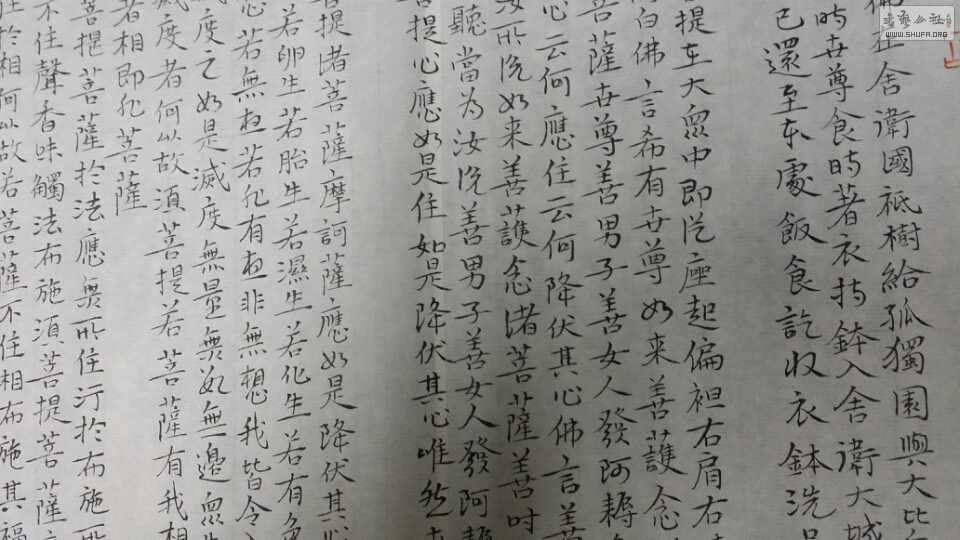 佛在舍衛國祇樹給孤獨園與大比
時世尊食時著衣持鉢入舍衛大城
已還至本處飯食訖收衣鉢洗足
菩提在大眾中即從座起偏袒右肩右
白佛言希有世尊如来善護念
菩薩世尊善男子善女人發阿耨
心云何應住云何降伏其心佛言善
汝所說如来善護念諸菩薩善付
聽當為汝說善男子善女人發阿耨
菩提心應如是住如是降伏其心唯然
菩提諸菩薩摩訶薩應如是降伏其心
若卵生若胎生若濕生若化生若有色
若無想若非有想非無想我皆令入
滅度之如是滅度無量無數無邊眾生
滅度者何以故須菩提若菩薩有我相
者相即非菩薩
菩提菩薩於法應無所住行於布施所
不住聲香味觸法布施須菩提菩薩應
住於相何以故若菩薩不住相布施其福
書法公社
WWW.SHUFA.ORG